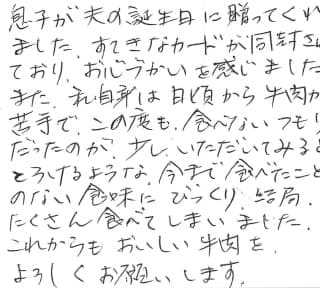 息子が夫の誕生日に贈ってくれ
ました。すてきなカードが同封さ
ており、お心づかいを感じました
また、私自身は日頃から牛肉が
苦手で、この度も、食べないつもり
だったのが、少しいただいてみると
とろけるような、今まで食べたこと
のない食味にびっくり、結局、
たくさん食べてしまいました。
これからもおいしい牛肉を、
よろしくお願いします。